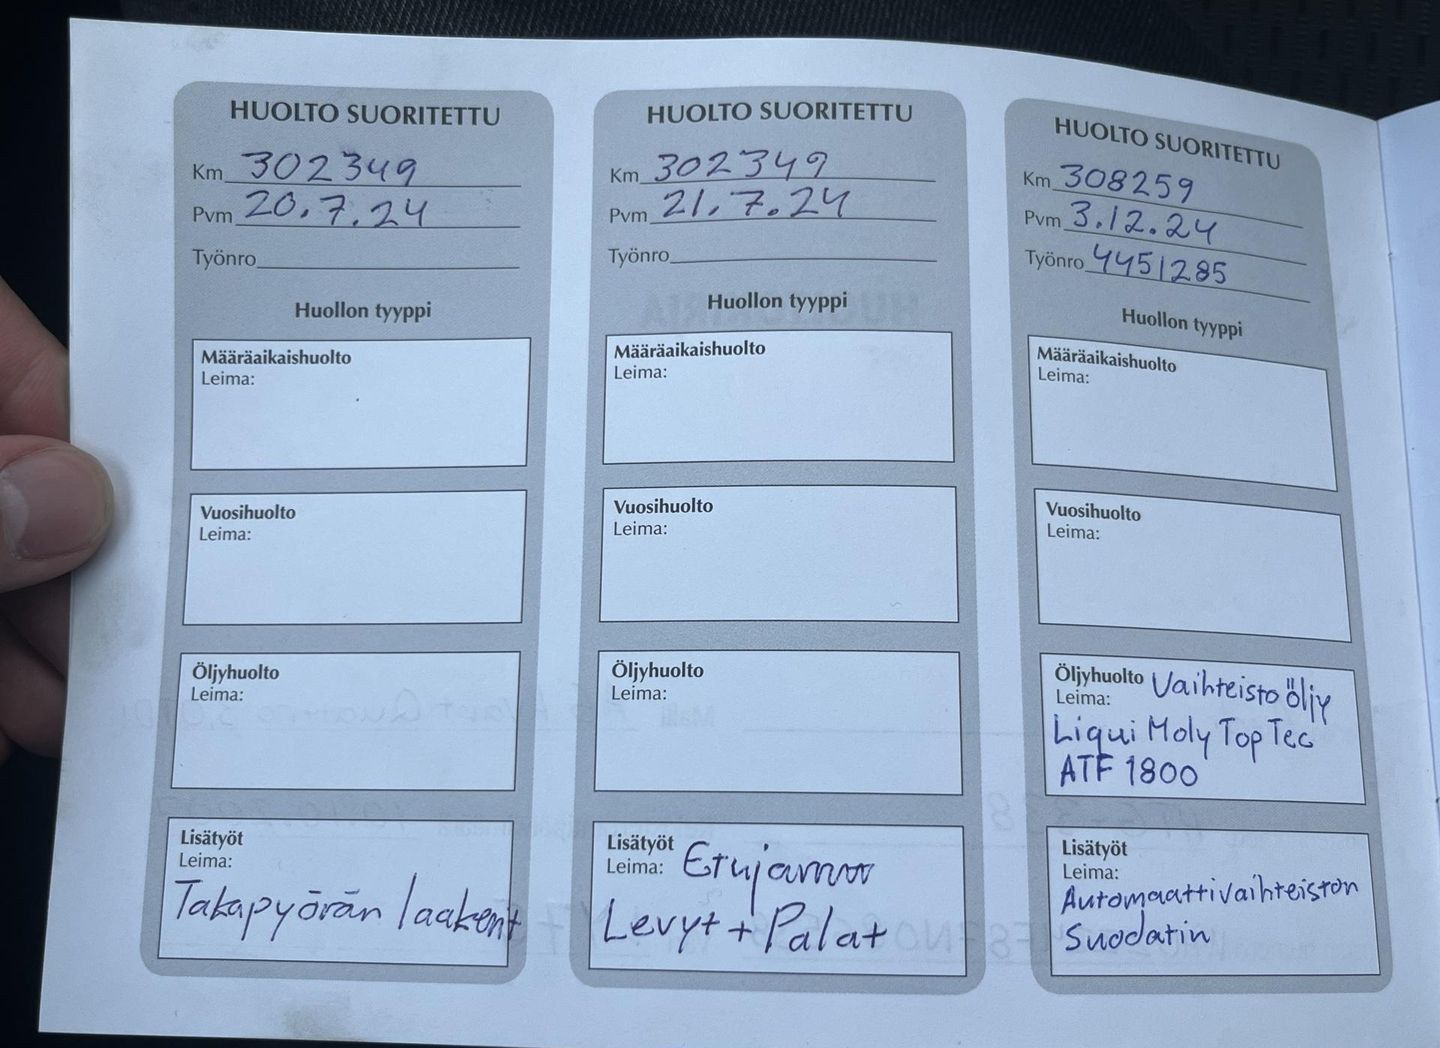 HUOLTO SUORITETTU
Km 302349
Pvm 20.7.24
Työnro
Huollon tyyppi
Määräaikaishuolto
Leima:
Vuosihuolto
Leima:
Öljyhuolto
Leima:
Lisätyöt
Leima:
Takapyörän laakerit
HUOLTO SUORITETTU
Km 302349
Pvm 21.7.24
Työnro
Huollon tyyppi
Määräaikaishuolto
Leima:
Vuosihuolto
Leima:
Öljyhuolto
Leima:
Lisätyöt
Leima: Etujarru
Levyt + Palat
HUOLTO SUORITETTU
Km 308259
Pvm 3.12.24
Työnro 4451285
Huollon tyyppi
Määräaikaishuolto
Leima:
Vuosihuolto
Leima:
Öljyhuolto Vaihteisto öljy
Leima:
Liqui Moly Top Tec
ATF 1800
Lisätyöt
Leima:
Automaattivaihteiston
Suodatin